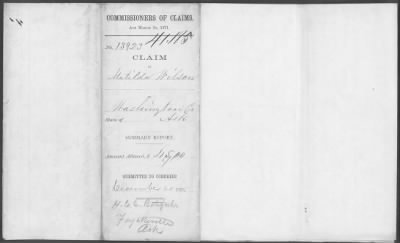 COMMISSIONERS OF CLAIMS.
Act March 3d, 1871.
No. 13923
CLAIM
of
Matilda Wilson
Washington Co
State of Ark
SUMMARY REPORT.
Amount Allowed, $
SUBMITTED TO CONGRESS
December
H. & C.
Fayetteville
Ark